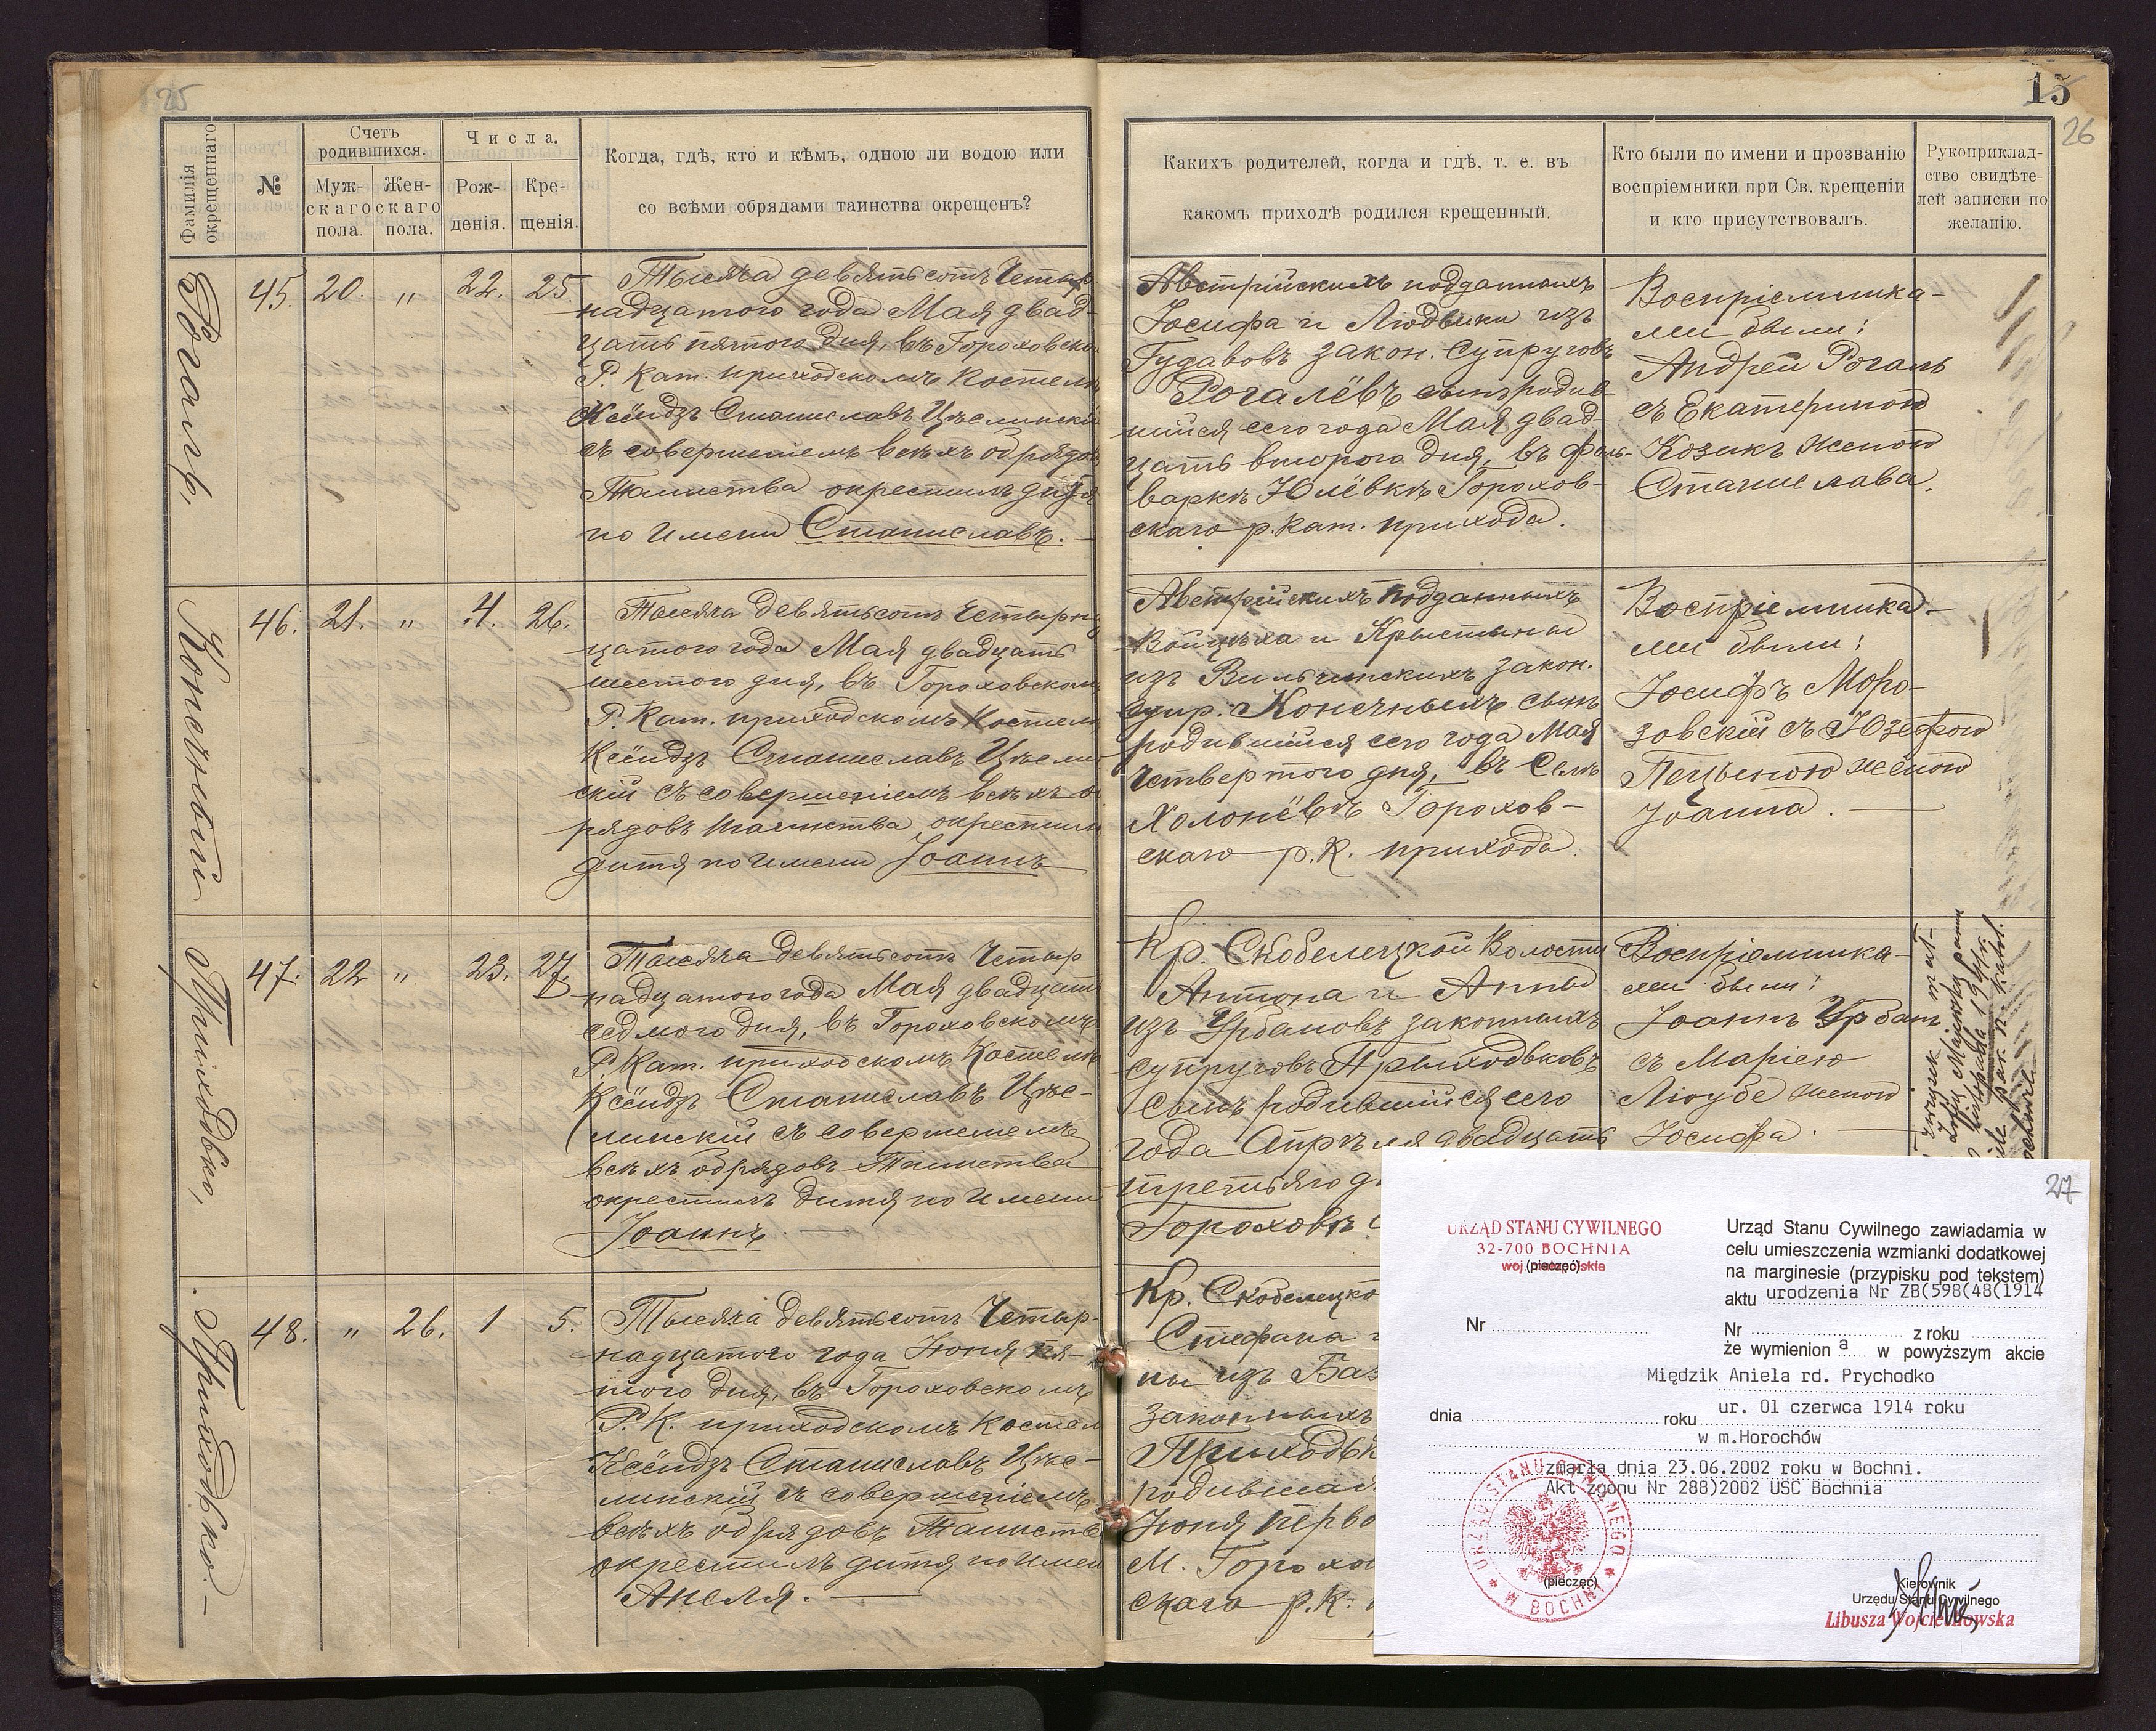 25
Фамилія окрещеннаго
№
Счетъ родившихся.
Муж-
скаго
пола.
Жен-
скаго
пола.
Числа.
Рож-
денія.
Кре-
щенія.
Когда, гдѣ, кто и кѣмъ, одною ли водою или
со всѣми обрядами таинства окрещенъ?
Рогаль,
45. 20. „ 22. 25.
Тысяча девятьсотъ Четыр
надцатого года Мая двад-
цать пятого дня, въ Гороховско
Р. Кат. приходскомъ Костелѣ
Ксёндзъ Станиславъ Цѣслински
съ совершеніемъ всѣхъ обрядов
Таинства окрестилъ дитя
по имени Станиславъ. –
Конечный
46. 21. „ 4. 26.
Тысяча девятьсотъ Четырна
цатого года Мая двадцать
шестого дня, въ Гороховском
Р. Кат. приходскомъ Костелѣ
Ксёндзъ Станиславъ Цѣслин
скій съ совершеніемъ всѣхъ о
рядовъ таинства окрестилъ
дитя по имени Іоаннъ
Приходько,
47. 22 „ 23. 27.
Тысяча девятьсотъ Четыр
надцатого года Мая двадцать
седмого дня, въ Гороховскомъ
Р. Кат. приходскомъ Костелѣ
Ксёндзъ Станиславъ Цѣс-
линскій съ совершеніемъ
всѣхъ обрядовъ Таинства
окрестилъ дитя по имени
Іоаннъ. —
Приходько. –
48. „ 26. 1 5.
Тысяча девятьсотъ Четыр-
надцатого года Іюня пя-
того дня, въ Гороховскомъ
Р. К. приходскомъ Костел
Ксёндзъ Станиславъ Цѣс-
линскій съ совершеніемъ
всѣхъ обрядовъ Таинств
окрестилъ дитя по имен
Анеля. —
15
26
Какихъ родителей, когда и гдѣ, т. е. въ
какомъ приходѣ родился крещенный.
Кто были по имени и прозванію
воспріемники при Св. крещеніи
и кто присутствовалъ.
Рукоприклад-
ство свидѣте-
лей записки по
желанію.
Австрійскихъ подданныхъ
Іосифа и Людвики изъ
Гудавовъ закон. супруговъ
Рогалёвъ сынъ родив-
шійся сего года Мая двад-
цать второго дня, въ фоль-
варкѣ Юлёвкѣ Горохов-
скаго р. кат. прихода.
Воспріемника-
ми были:
Андрей Рогаль
съ Екатериною
Козикъ женою
Станислава.
Австрійскихъ подданныхъ
Войцѣха и Крыстыны
изъ Вильчинскихъ закон.
супр. Конечныхъ сынъ
родившійся сего года Мая
Четвертого дня, въ Селѣ
Холонёвѣ Горохов-
скаго р. к. прихода.
Воспріемника-
ми были:
Іосифъ Моро-
зовскій съ Юзефою
Пецьеною женою
Іоанна. —
Кр. Скобелецкой Волости
Антона и Анны
изъ Урбановъ законныхъ
супруговъ Приходьковъ
сынъ родившійся сего
года Апрѣля двадцать
третьяго д
Гороховѣ
Воспріемника-
ми были:
Іоаннъ Урбанъ
съ Маріею
Люубе женою
Іосифа. —
Кр. Скобелецко
Стефана
ны изъ Баз
законныхъ
Приходьк
родившая
Іюня перво
М. Горохо
скаго р. к.
27
URZĄD STANU CYWILNEGO
32-700 BOCHNIA
(pieczęć)
Urząd Stanu Cywilnego zawiadamia w
celu umieszczenia wzmianki dodatkowej
na marginesie (przypisku pod tekstem)
aktu urodzenia Nr ZB(598(48(1914
Nr
Nr z roku
że wymienion a w powyższym akcie
Międzik Aniela rd. Prychodko
ur. 01 czerwca 1914 roku
dnia roku
w m.Horochów
zmarła dnia 23.06.2002 roku w Bochni.
Akt zgonu Nr 288)2002 USC Bochnia
URZĄD STANU CYWILNEGO
W BOCHNI
(pieczęć)
Kierownik
Urzędu Stanu Cywilnego
Libusza Wojciechowska